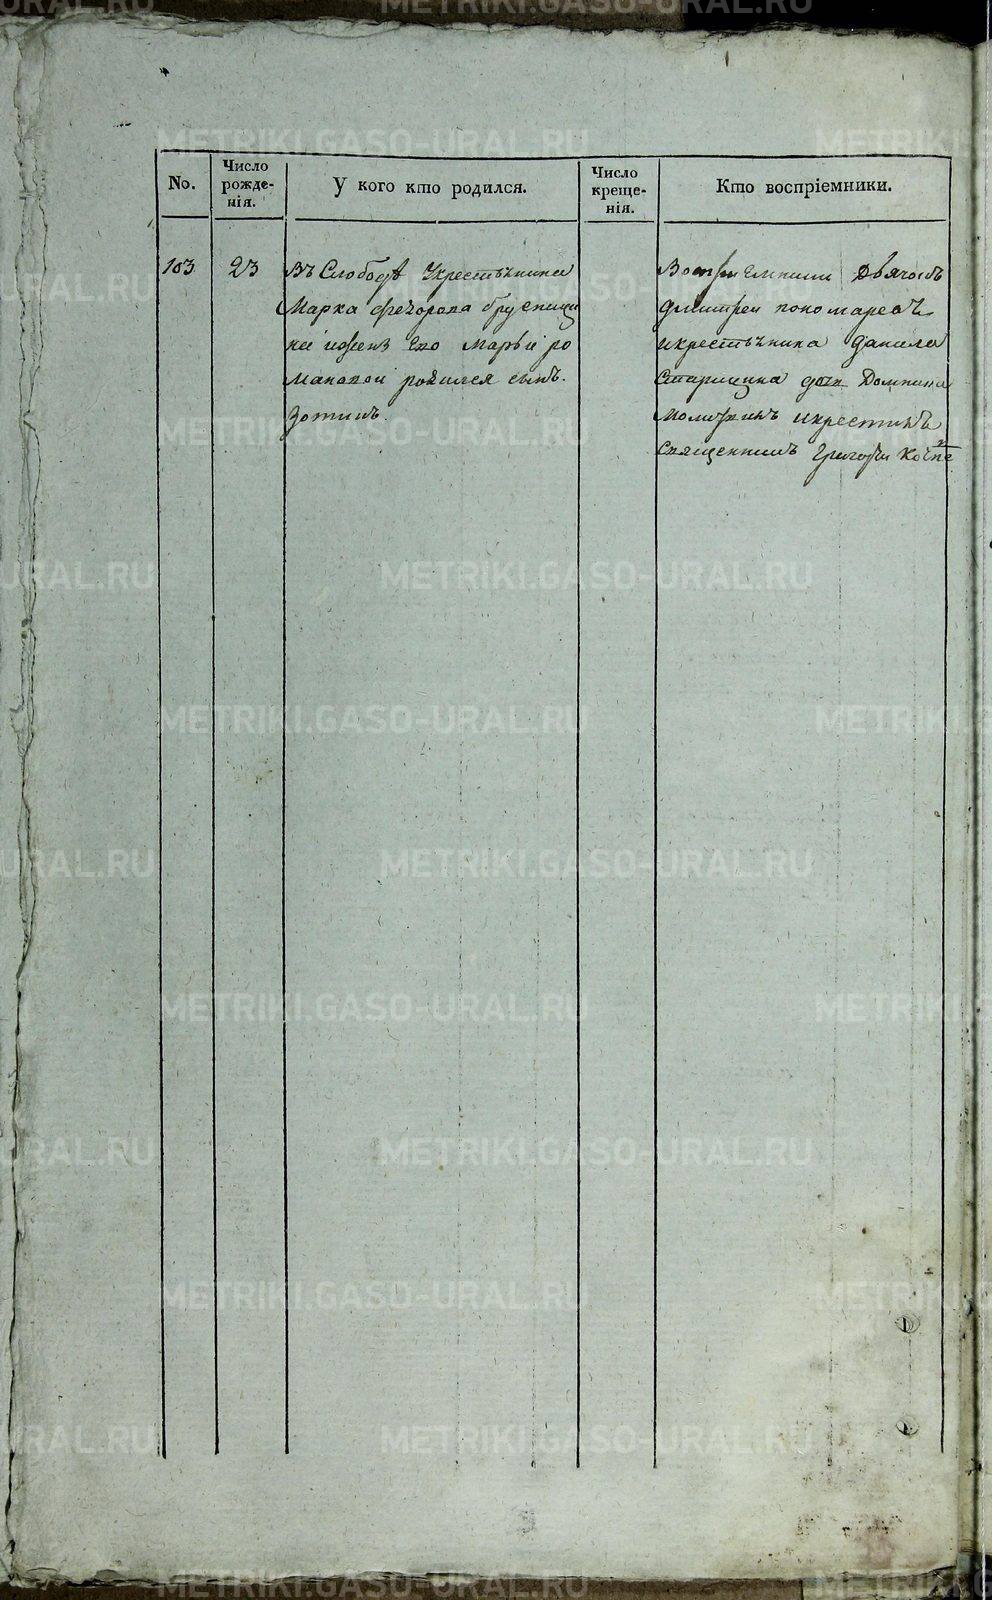 No.
Число рожде-нія.
У кого кто родился.
Число креще-нія.
Кто воспріемники.
103
23
Въ Слободѣ Укрестьянина
Марка Федорова брусници
на ижены Его Марьи ро
мановой родился сынъ.
Зотикъ.
Воспріемники Дьячокъ
Дмитреи пономаревъ
икрестьянина Данила
Старицина дочь Домника
молитвилъ икрестилъ
Священникъ Григореи
METRIKI.GASO-URAL.RU